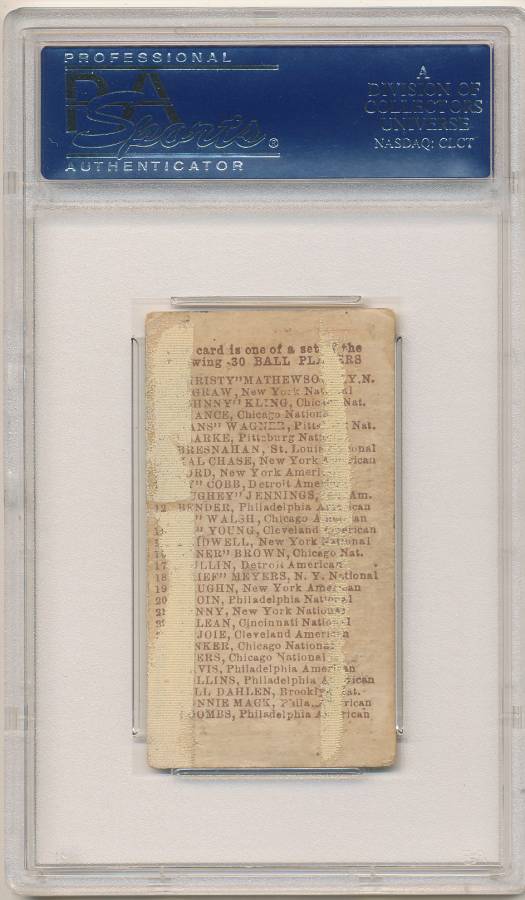 PROFESSIONAL
PSA
Sports®
AUTHENTICATOR
A
DIVISION OF
COLLECTORS
UNIVERSE
NASDAQ: CLCT
card is one of a set of the
wing 30 BALL PLAYERS
RISTY" MATHEWSO Y, N.
GRAW, New York National
HNNY" KLING, Chicago Nat.
ANCE, Chicago National
ANS" WAGNER, Pittsb Nat.
ARKE, Pittsburg National
BRESNAHAN, St. Louis National
AL CHASE, New York American
ORD, New York American
Y" COBB, Detroit American
UGHEY" JENNINGS, Am.
12 BENDER, Philadelphia American
" WALSH, Chicago American
" YOUNG, Cleveland American
IDWELL, New York National
16 NER" BROWN, Chicago Nat.
17 LLIN, Detroit American
18 IEF" MEYERS, N. Y. National
19 UGHN, New York American
20 OIN, Philadelphia National
21 NNY, New York National
22 LEAN, Cincinnati National
JOIE, Cleveland American
NKER, Chicago National
ERS, Chicago National
VIS, Philadelphia American
LLINS, Philadelphia American
LL DAHLEN, Brooklyn Nat.
ONNIE MACK, Phila. American
OOMBS, Philadelphia American